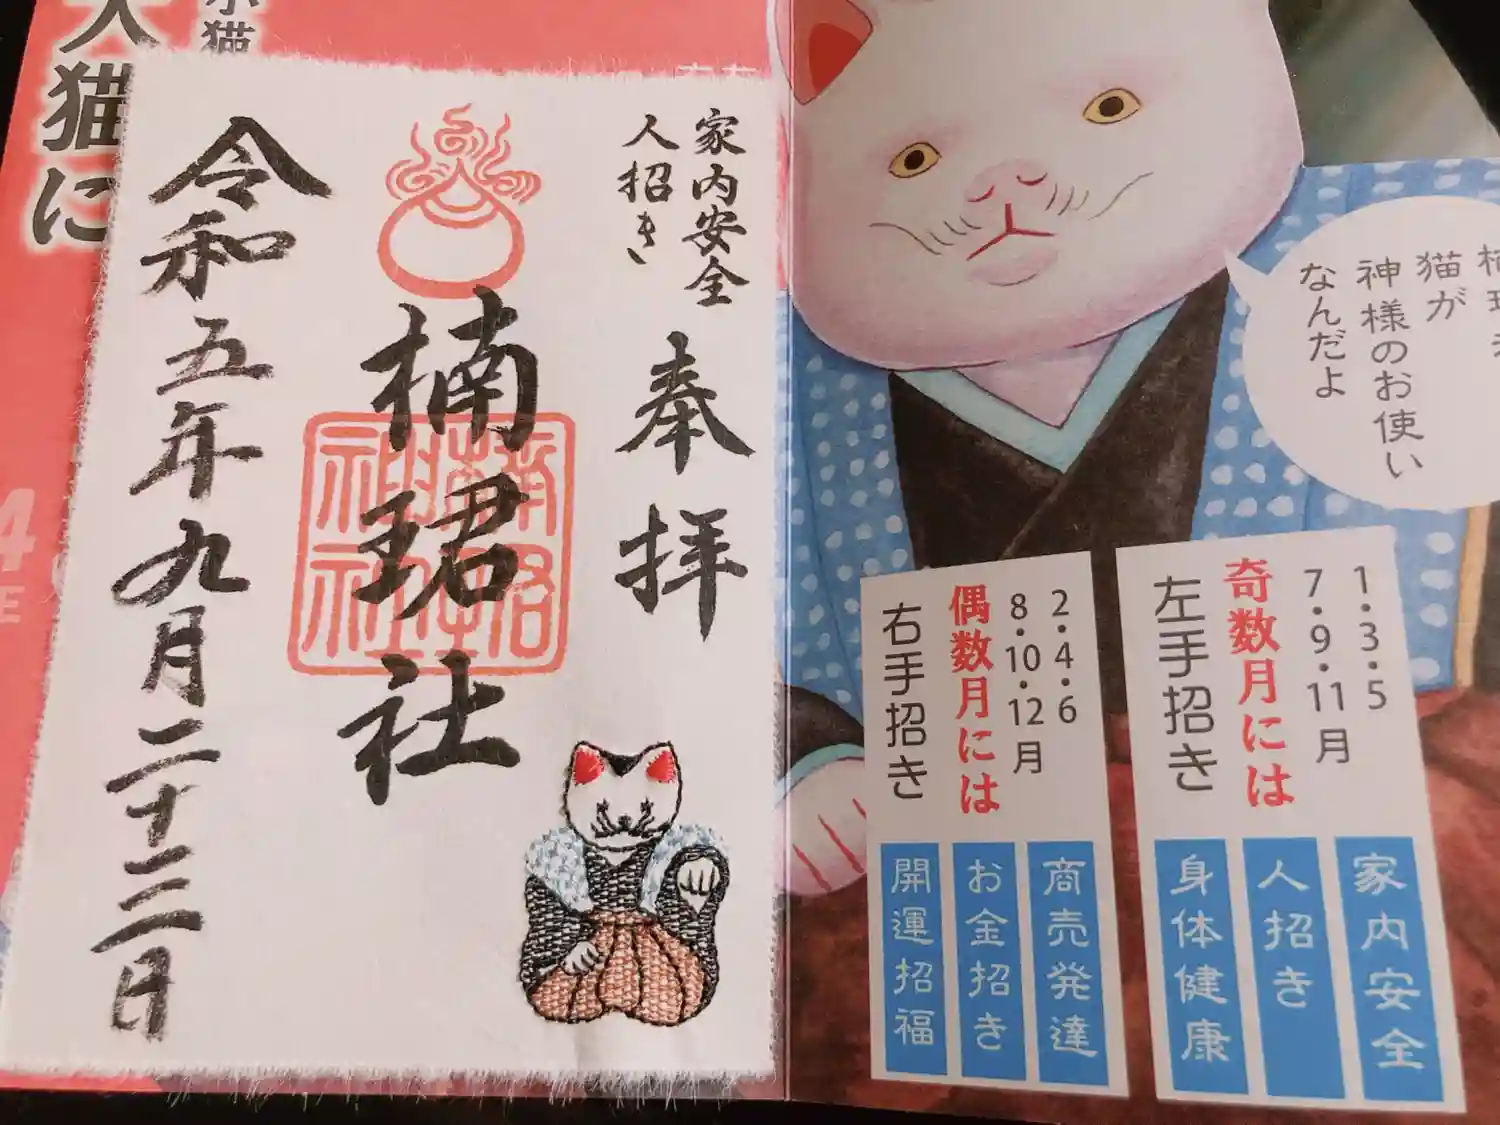 小猫
大猫に
家内安全
人招き
奉拝
楠珺社
令和五年九月二十三日
猫が
神様のお使い
なんだよ
1・3・5
7・9・11月
奇数月には
左手招き
家内安全
人招き
身体健康
2・4・6
8・10・12月
偶数月には
右手招き
商売発達
お金招き
開運招福